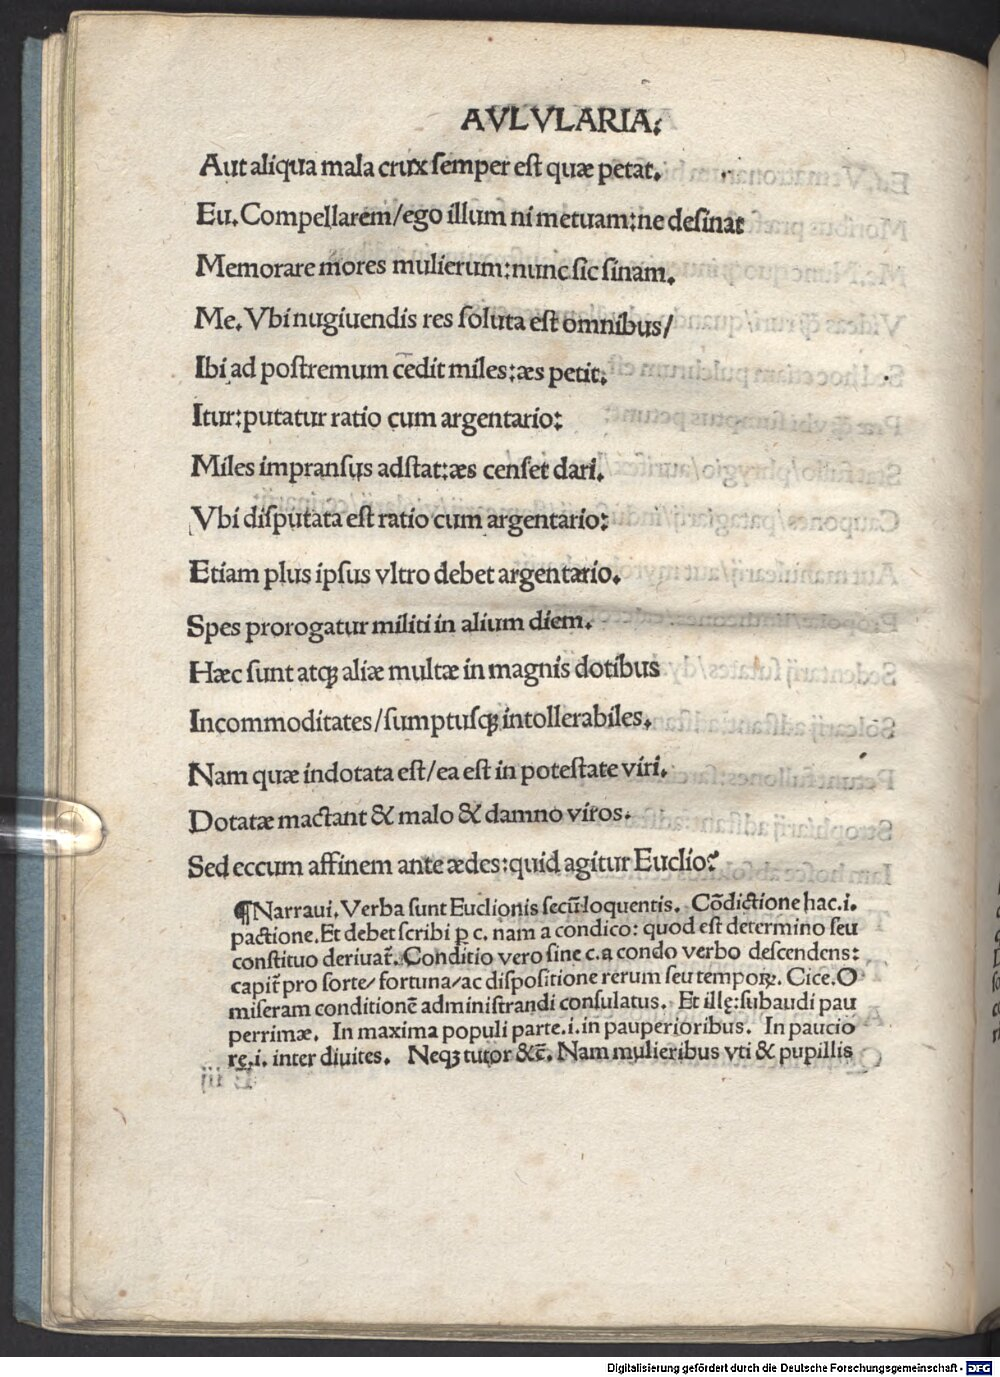 AVLVLARIA.
Aut aliqua mala crux semper est quæ petat.
Eu. Compellarem/ego illum ni metuam:ne desinat
Memorare mores mulierum:nunc sic sinam.
Me. Vbi nugiuendis res soluta est omnibus/
Ibi ad postremum cedit miles:æs petit:
Itur:putatur ratio cum argentario:
Miles impransus adstat:æs censet dari.
Vbi disputata est ratio cum argentario:
Etiam plus ipsus vltro debet argentario.
Spes prorogatur militi in alium diem.
Hæc sunt atqꝫ aliæ multæ in magnis dotibus
Incommoditates/sumptusqꝫ intollerabiles.
Nam quæ indotata est/ea est in potestate viri.
Dotatæ mactant & malo & damno viros.
Sed eccum affinem ante ædes:quid agitur Euclio?
¶Narraui. Verba sunt Euclionis secū loquentis. Cōdictione hac.i.
pactione.Et debet scribi p c. nam a condico: quod est determino seu
constituo deriuat̄. Conditio vero sine c.a condo verbo descendens:
capit̄ pro sorte/fortuna/ac dispositione rerum seu temporꝝ. Cice.O
miseram conditionē administrandi consulatus. Et illę:subaudi pau
perrimæ. In maxima populi parte.i.in pauperioribus. In paucio
rę.i. inter diuites. Neqꝫ tutor &c̄. Nam mulieribus vti & pupillis
Digitalisierung gefördert durch die Deutsche Forschungsgemeinschaft - DFG